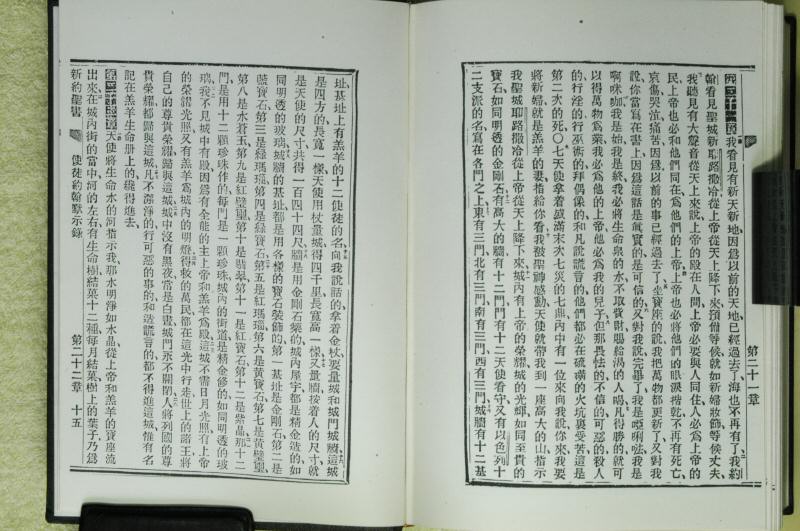 第二十一章
第二十一章我看見有新天新地因爲以前的天地已經過去了海也不再有了我約
翰看見聖城新耶路撒冷從上帝從天上降下來預備等候就如新婦妝飾等候丈夫
我聽見有大聲音從天上來說上帝的殿在人間上帝必要與人同住人必爲上帝的
民上帝也必和他們同在爲他們的上帝上帝也必將他們的眼淚揩乾不再有死亡
哀傷哭泣痛苦因爲以前的事已經過去了坐寶座的說我把萬物都更新了又對我
說你當寫在書上因爲這話是眞實的是可信的又對我說完畢了我是啞唎咈我是
啊咪咖我是始我是終我必將生命泉的水不取貲財賜給渴的人喝凡得勝的就可
以得萬物爲業我必爲他的上帝他必爲我的兒子但那畏怯的不信的可惡的殺人
的行淫的行巫術的拜偶像的和凡說謊言的他們都必在硫磺的火坑裏受苦這是
第二次的死〇七天使拿着盛滿末次七災的七鼎內中有一位來向我說你來我要
將新婦就是羔羊的妻指給你看我被聖神感動天使就帶我到一座高大的山指示
我聖城耶路撒冷從上帝從天上降下來城內有上帝的榮耀城的光輝如同至貴的
寶石如同明透的金剛石有高大的牆有十二門門有十二天使看守又有以色列十
二支派的名寫在各門之上東有三門北有三門南有三門西有三門城牆有十二基
址基址上有羔羊的十二使徒的名向我說話的拿着金杖要量城和城門城牆這城
是四方的長寬一樣天使用杖量城得四千里長寬高一樣又量牆按着人的尺寸就
是天使的尺寸共得一百四十四尺牆是用金剛石築的城內屋宇都是精金造的如
同明透的玻璃城牆的基址都是用各樣的寶石裝飾的第一基址是金剛石第二是
藍寶石第三是綠瑪瑙第四是綠寶石第五是紅瑪瑙第六是黃寶石第七是黃璧璽
第八是水蒼玉第九是紅璧璽第十是翡翠第十一是紅寶石第十二是紫晶那十二
門是用十二顆珍珠作的每門是一顆珍珠城內的街道是精金修的如同明透的玻
璃我不見城中有殿因爲有全能的主上帝和羔羊爲殿這城不需日月光照有上帝
的榮耀光照又有羔羊爲城內的明燈得救的萬民都在這光中行走世上的諸王將
自己的尊貴榮耀歸與這城城中沒有黑夜常是白晝城門永不關閉人將列國的尊
貴榮耀都歸與這城凡不潔淨的行可惡的事的和造謊言的都不得進這城惟有名
記在羔羊生命册上的纔得進去
第二十二章天使將生命水的河指示我那水明淨如水晶從上帝和羔羊的寶座流
出來在城內街的當中河的左右有生命樹結菓十二種每月結菓樹上的葉子乃爲
新約聖書 使徒約翰默示錄 第二十二章 十五